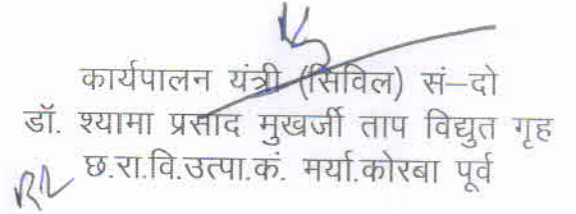 कार्यपालन यंत्री (सिविल) सं–दो
डॉ. श्यामा प्रसाद मुखर्जी ताप विद्युत गृह
छ.रा.वि.उत्पा.कं. मर्या.कोरबा पूर्व